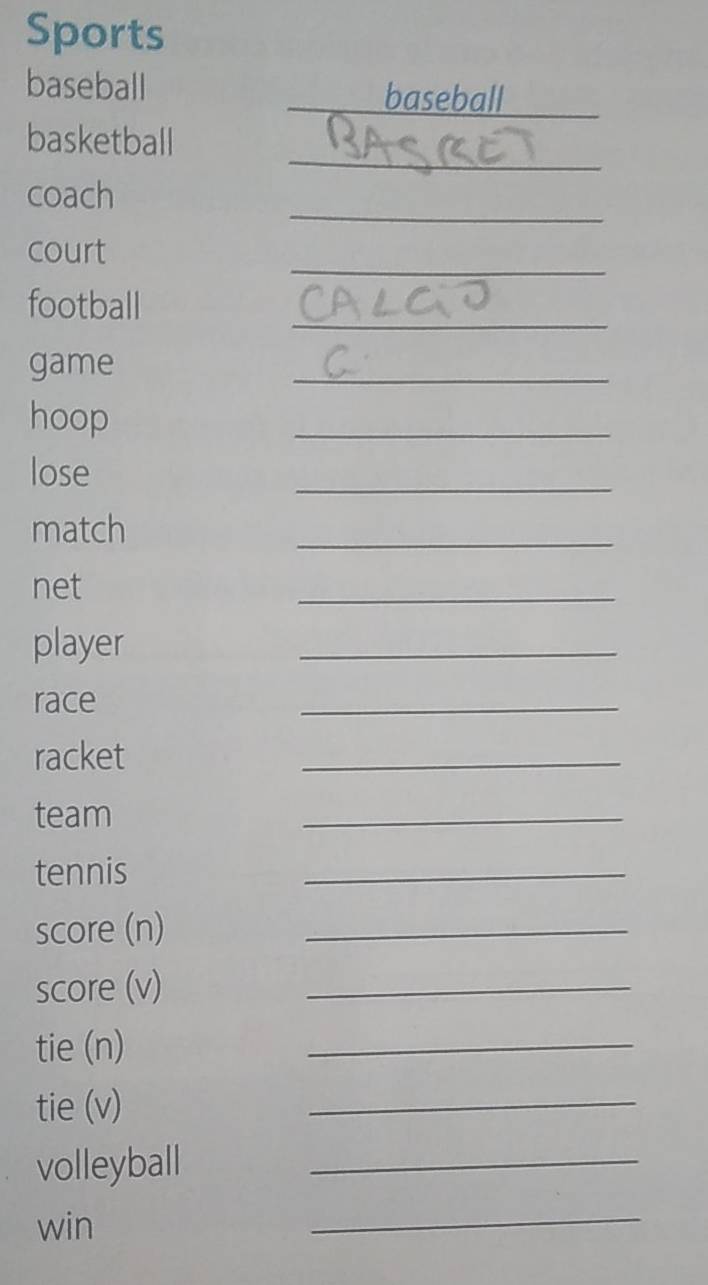 Sports
baseball baseball
basketball BASKET
coach
court
football CALCIO
game G
hoop
lose
match
net
player
race
racket
team
tennis
score (n)
score (v)
tie (n)
tie (v)
volleyball
win